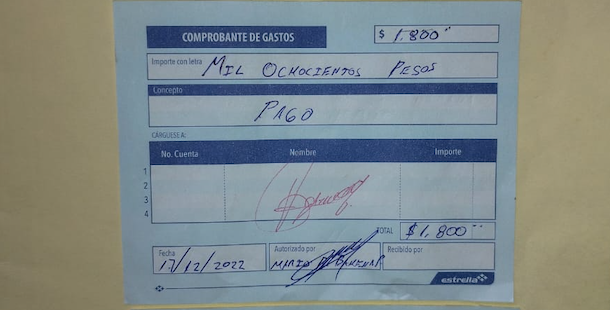 COMPROBANTE DE GASTOS $ 1,800"
Importe con letra MIL OCHOCIENTOS PESOS
Concepto
PAGO
CÁRGUESE A:
No. Cuenta Nombre Importe
1
2
3
4
TOTAL $1,800"
Fecha Autorizado por Recibido por
17/12/2022 MARIO
estrella